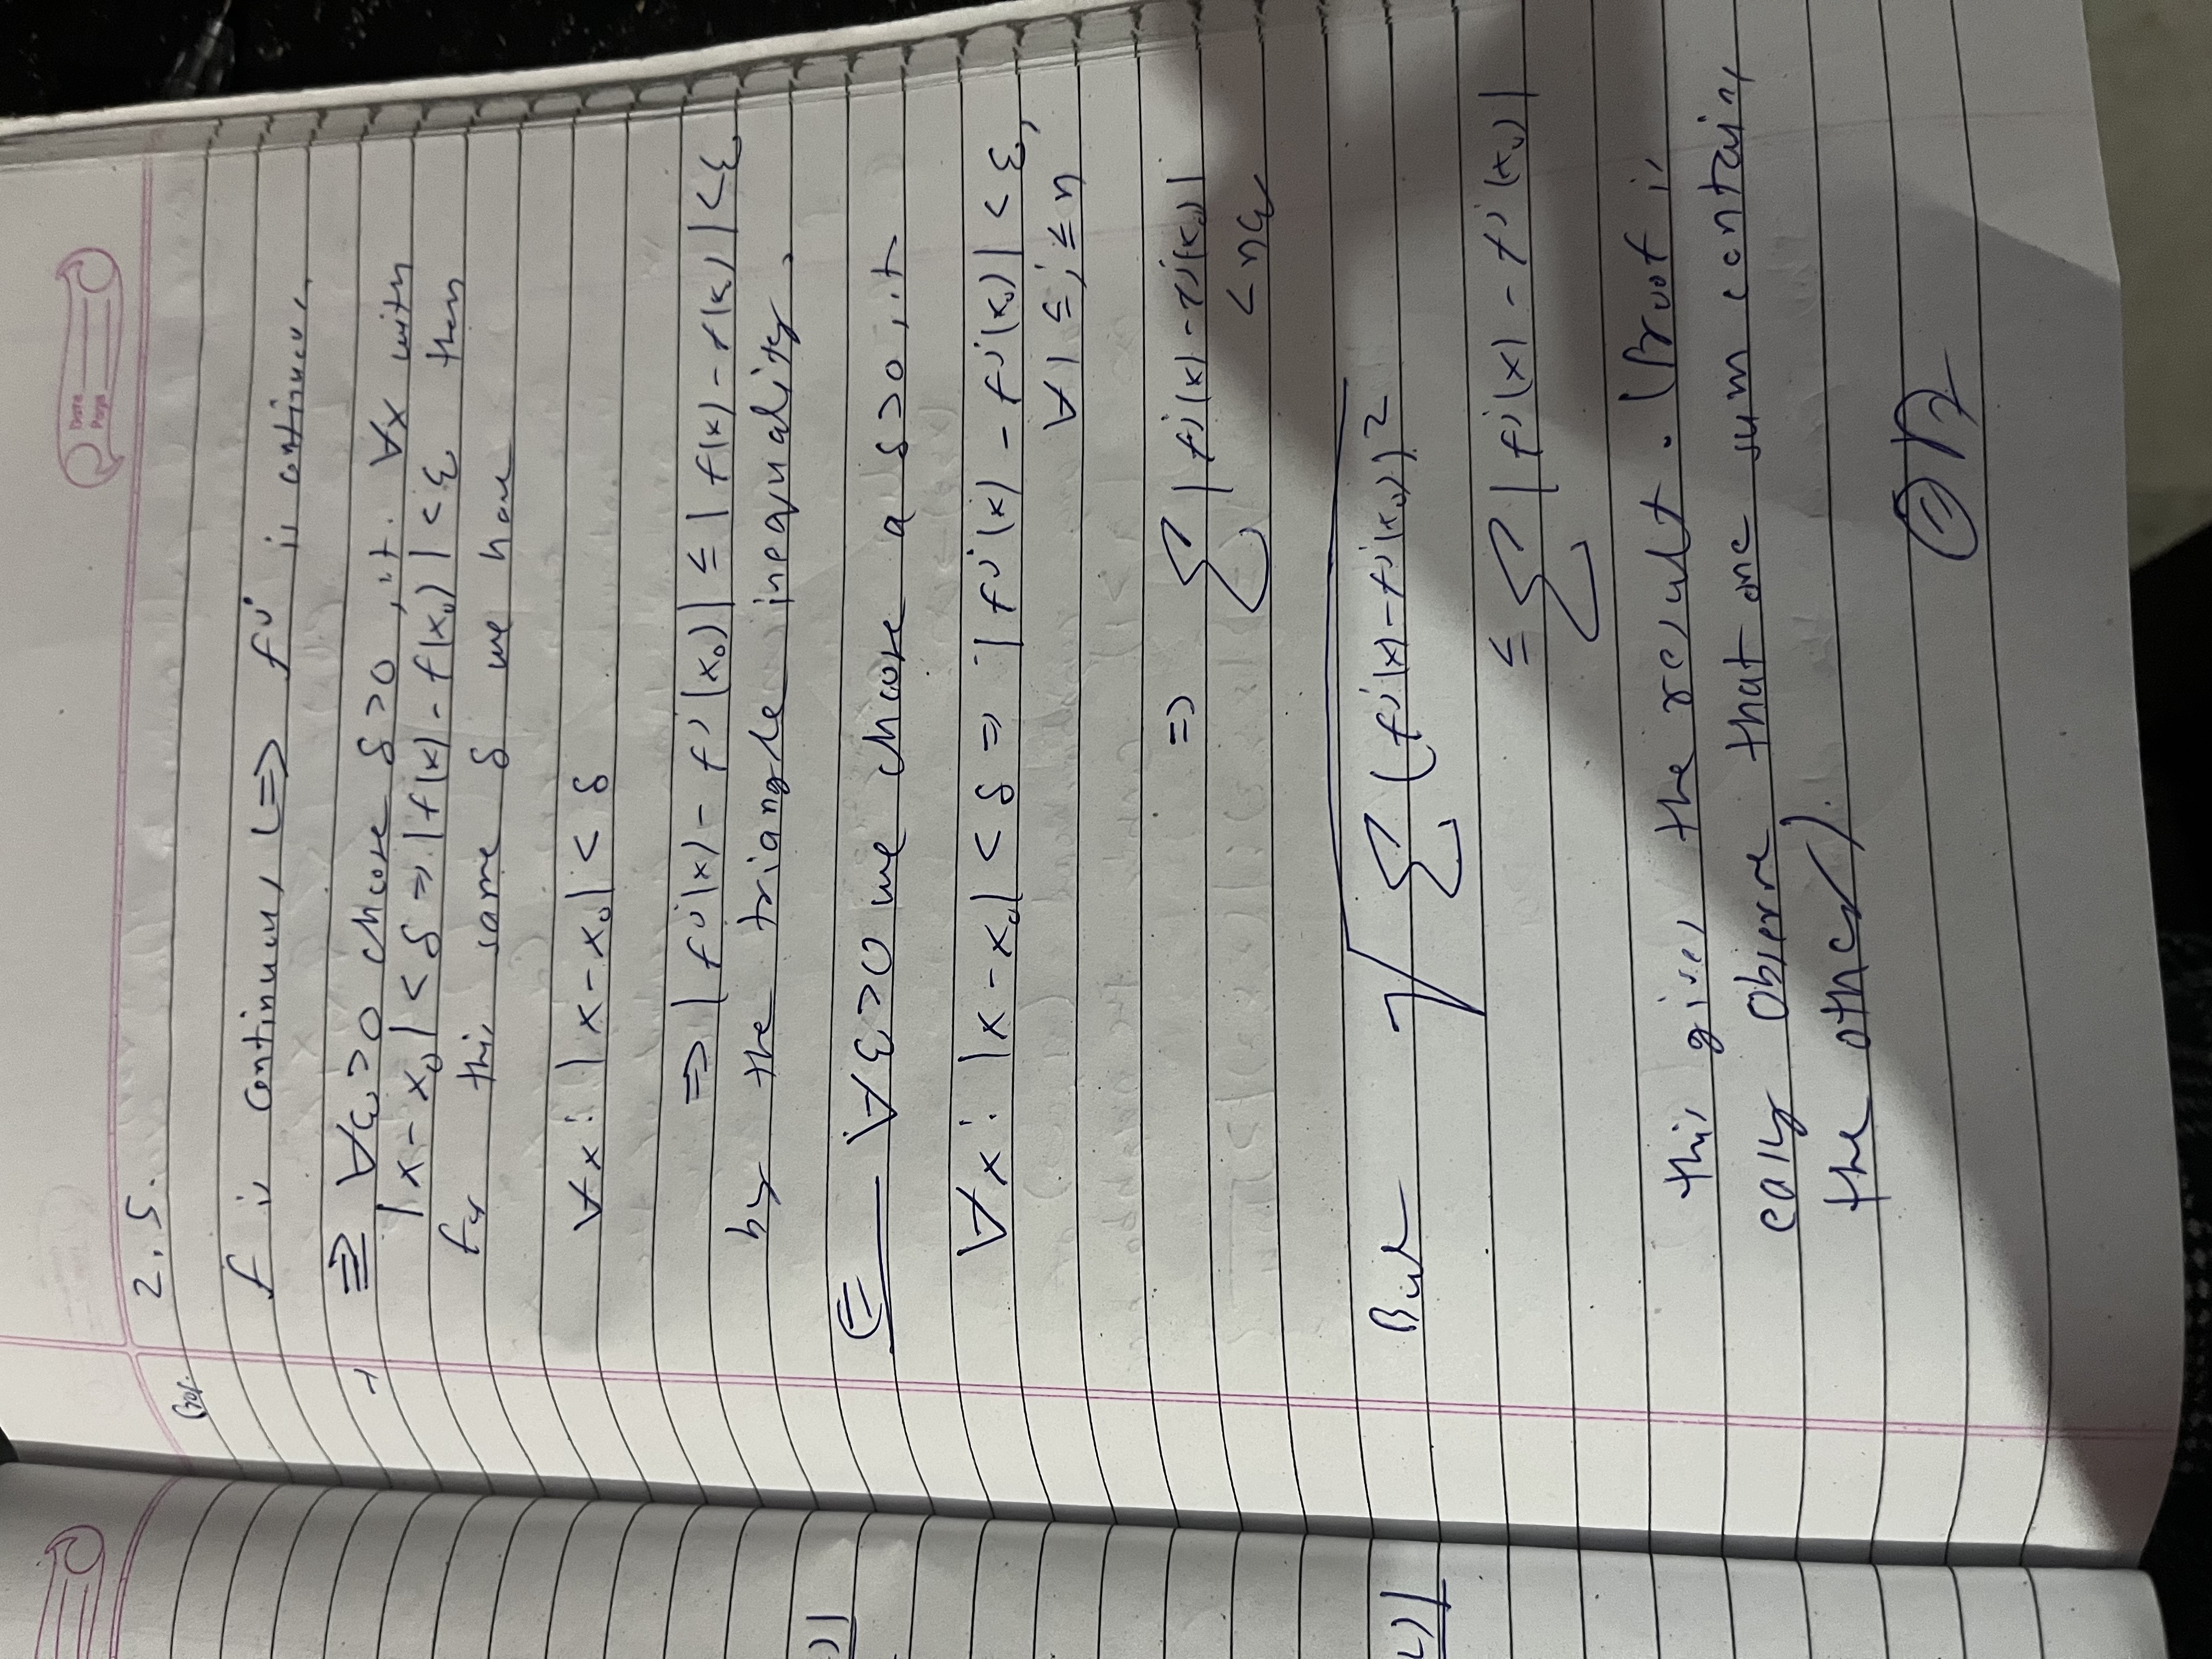 Date
Page
2.5.
Prop.
f is continuous <=> f^j is continuous
→ => ∀ε>0 choose δ>0, s.t. ∀x with
|x-x₀| < δ => |f(x) - f(x₀)| < ε then
for this same δ we have
∀x: |x-x₀| < δ
=> |f^j(x) - f^j(x₀)| ≤ |f(x) - f(x₀)| < ε
by the triangle inequality.
)|
<= ∀ε>0 we choose a δ>0, s.t
∀x: |x-x₀| < δ => |f^j(x) - f^j(x₀)| < ε,
∀ 1 ≤ j ≤ n
=> Σ |f^j(x) - f^j(x₀)|
< nε
But √Σ (f^j(x) - f^j(x₀))²
)|
≤ Σ |f^j(x) - f^j(x₀)|
this gives the result. (Proof is
easy observe that one sum contains
the other).